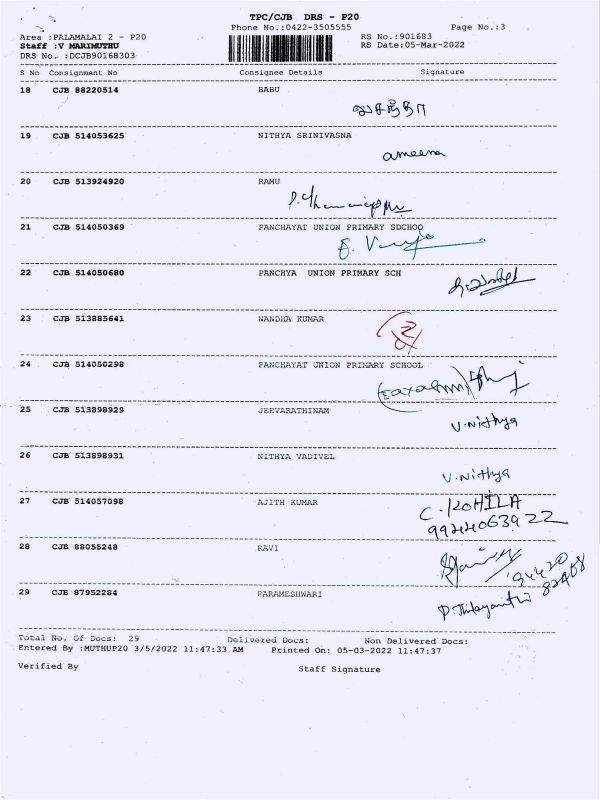 TPC/CJB DRS - P20
Phone No.:0422-3505555 Page No.:3
Area :PALAMALAI 2 - P20 RS No.:901683
Staff :V MARIMUTHU RS Date:05-Mar-2022
DRS No. :DCJB90168303
S No Consignment No Consignee Details Signature
18 CJB 88220514 BABU
வசந்தா
19 CJB 514053625 NITHYA SRINIVASNA
ameena
20 CJB 513924920 RAMU
21 CJB 514050369 PANCHAYAT UNION PRIMARY SDCHOO
22 CJB 514050680 PANCHYA UNION PRIMARY SCH
23 CJB 513885641 NANDHA KUMAR
24 CJB 514050298 PANCHAYAT UNION PRIMARY SCHOOL
25 CJB 513898929 JEEVARATHINAM
V.Nithya
26 CJB 513898931 NITHYA VADIVEL
V.Nithya
27 CJB 514057098 AJITH KUMAR
C. KOHILA
9944063922
28 CJB 88055248 RAVI
29 CJB 87952284 PARAMESHWARI
Total No. Of Docs: 29 Delivered Docs: Non Delivered Docs:
Entered By :MUTHUP20 3/5/2022 11:47:33 AM Printed On: 05-03-2022 11:47:37
Verified By Staff Signature